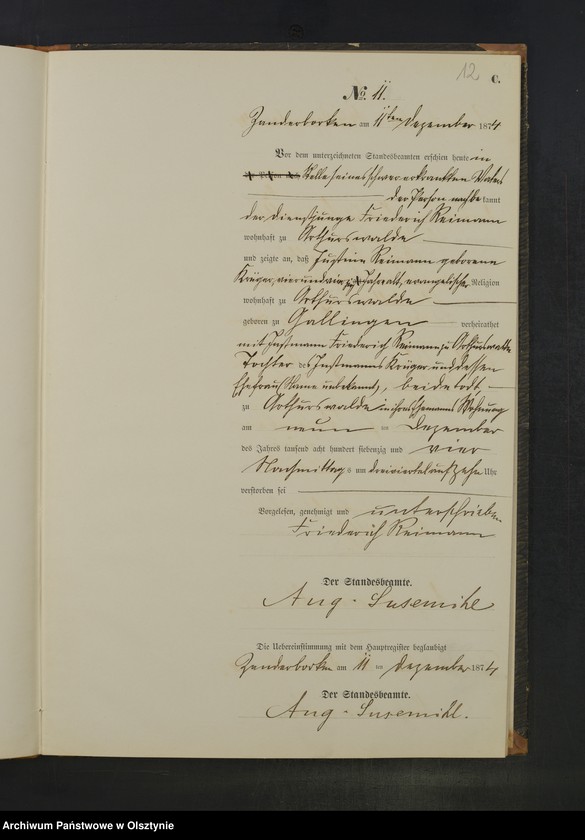 12
C.
No. 11.
Zenderborken am 11ten Dezember 1874
Vor dem unterzeichneten Standesbeamten erschien heute in
Stelle seines schwer erkrankten Vaters
der Person nach bekannt
der Dienstjunge Friederich Reimann
wohnhaft zu Arthurswalde
und zeigte an, daß Justine Reimann geborene
Krüger, vierundvierzig Jahre alt, evangelischer Religion
wohnhaft zu Arthurswalde
geboren zu Gallingen verheirathet
mit Instmann Friederich Reimann zu Arthurswalde
Tochter des Instmanns Krüger und dessen
Ehefrau, Name unbekannt, beide todt
zu Arthurswalde in ihres Ehemanns Wohnung
am neun ten Dezember
des Jahres tausend acht hundert siebenzig und vier
Nachmittags um dreiviertel auf zehn Uhr
verstorben sei
Vorgelesen, genehmigt und unterschrieben
Friederich Reimann
Der Standesbeamte.
Aug. Susemihl
Die Uebereinstimmung mit dem Hauptregister beglaubigt
Zenderborken am 11 ten Dezember 1874
Der Standesbeamte.
Aug. Susemihl.
Archiwum Państwowe w Olsztynie